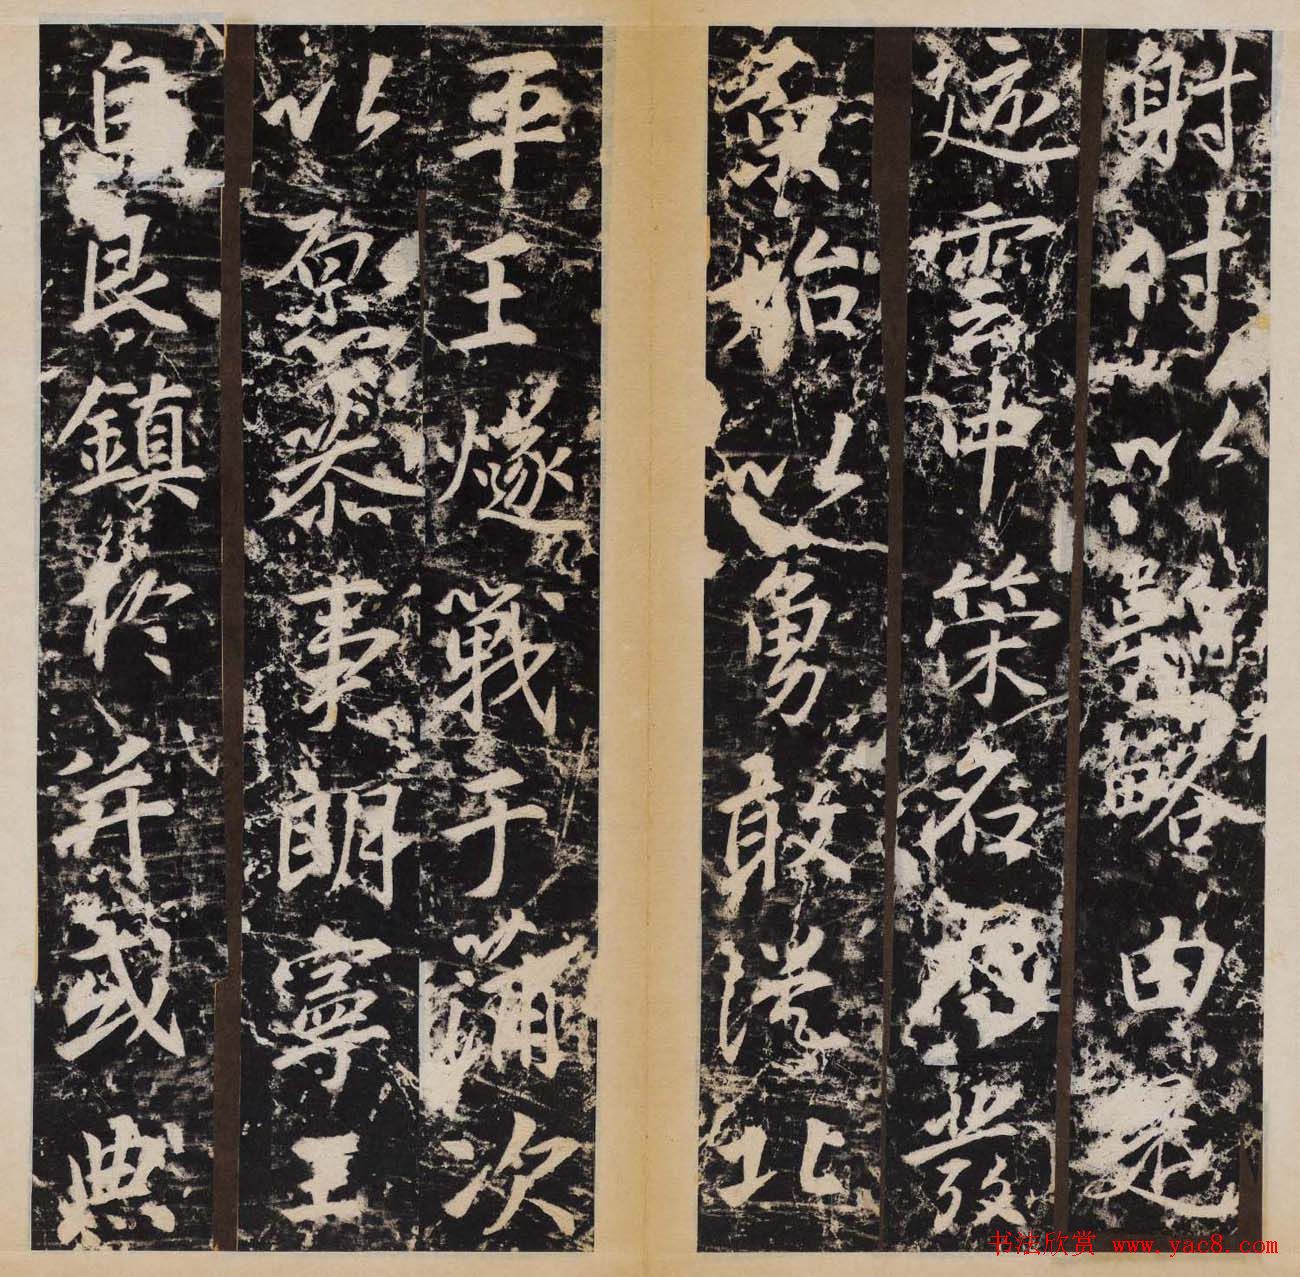 射付以韜略由是
迹雲中策名並發
始以勇敢從北
平王燧戰于蒲次
以原慕事朗寧王
自良鎮於并或典
书法欣赏 www.yac8.com